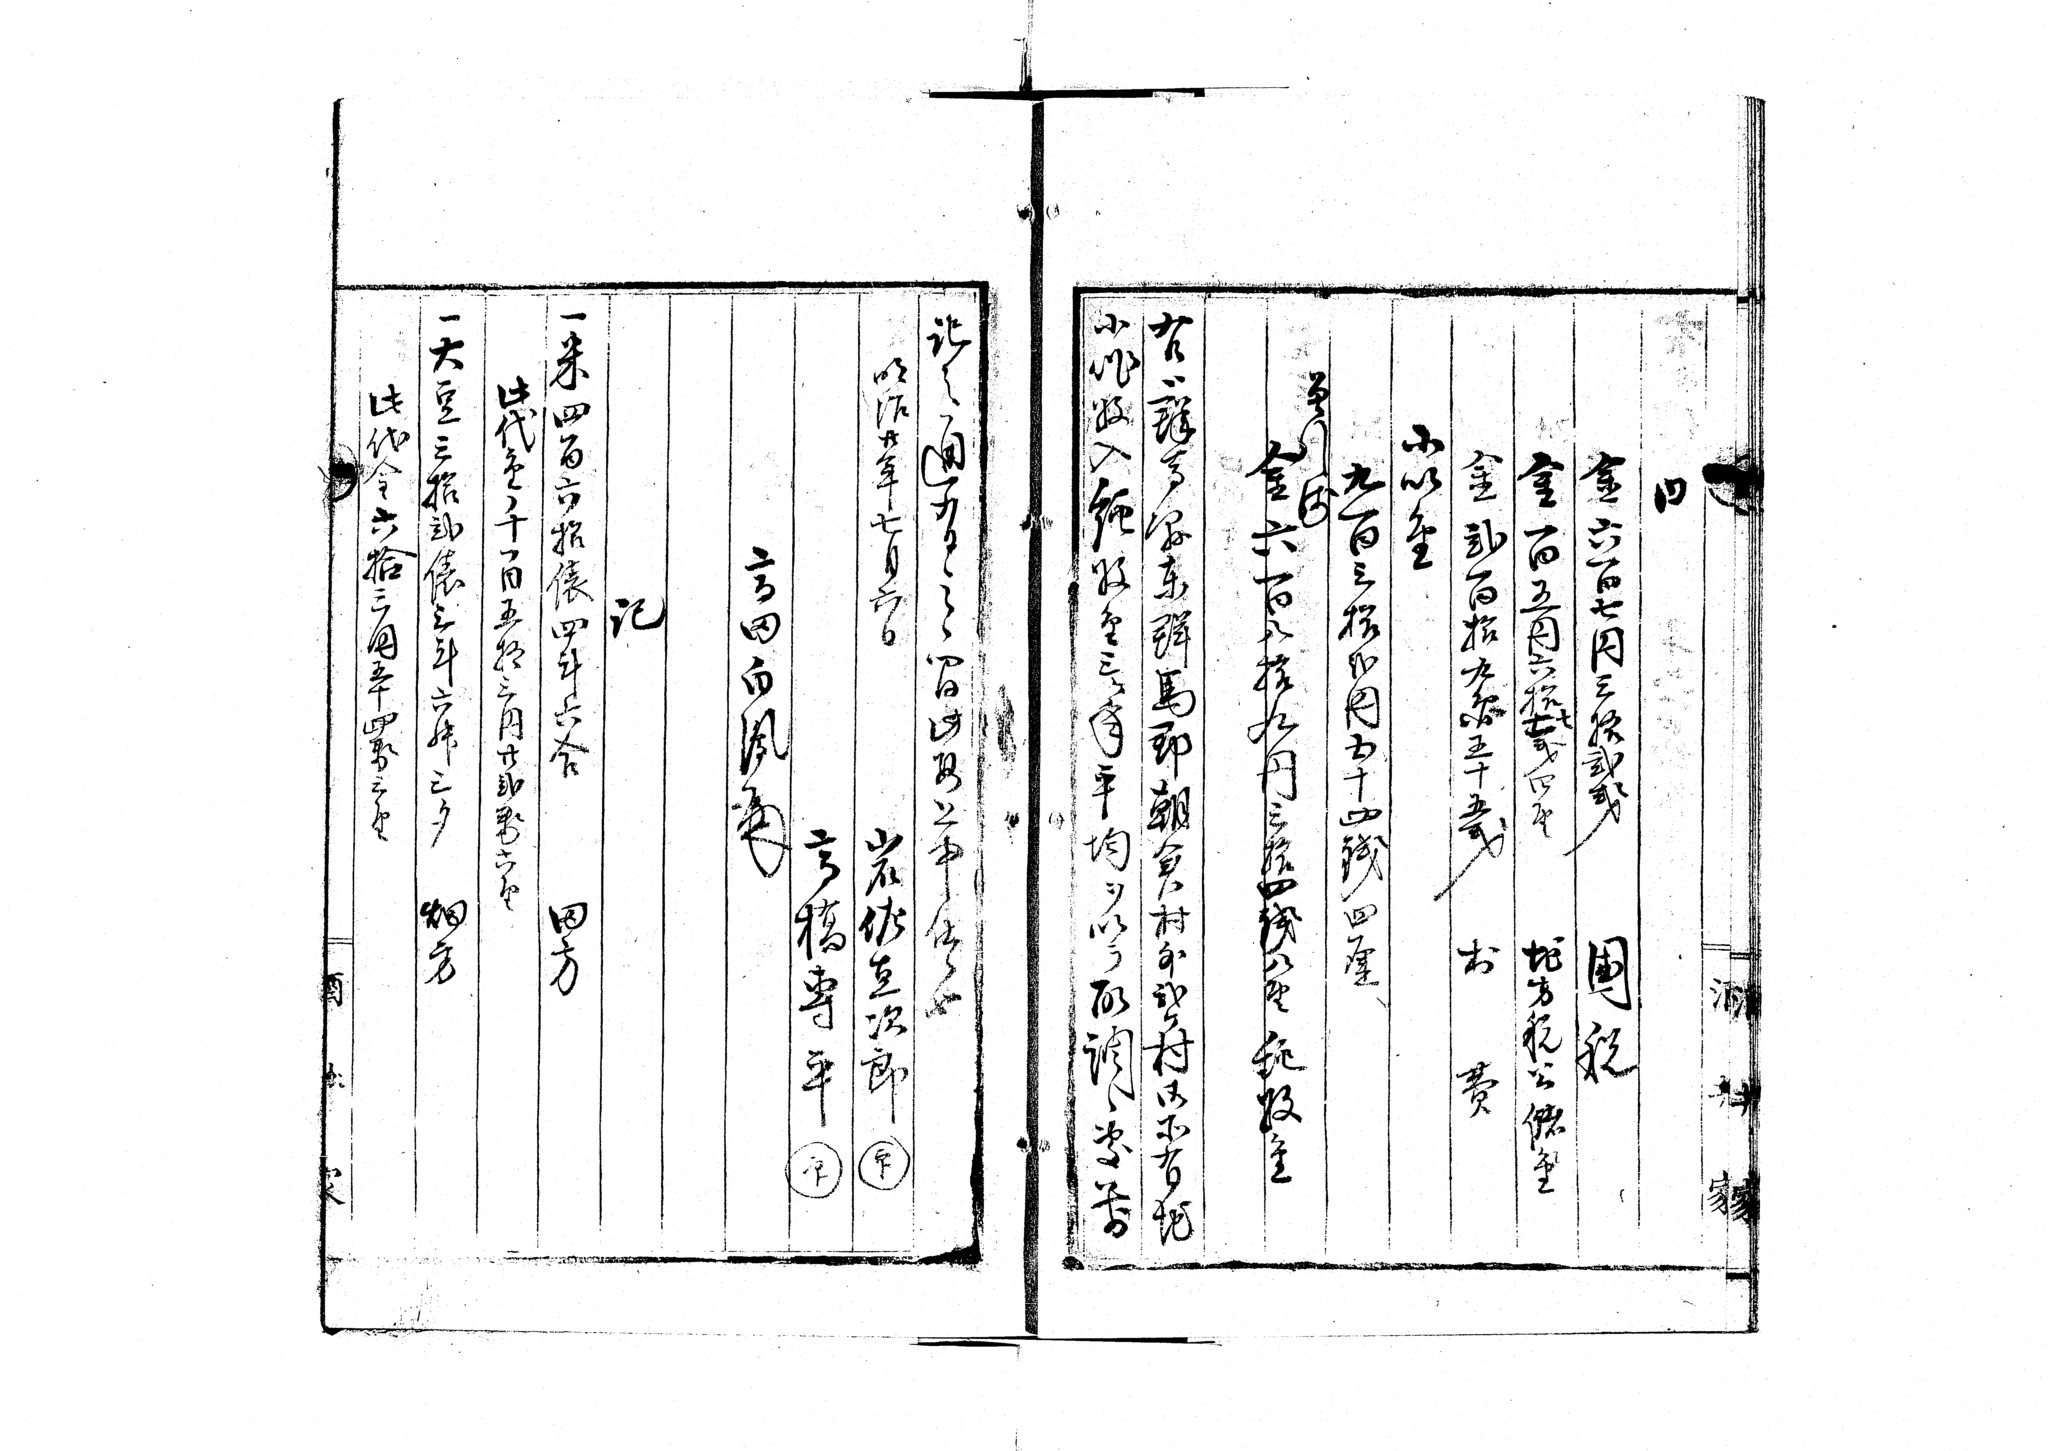 内
金六百七円三拾弐銭 国税
金一百五円六拾七銭四厘 地方税公儲金
金弐百拾九円五十五銭 村費
小以金
九百三拾弐円五十四銭四厘
差引残
金六百八拾九円三拾四銭八厘 純収金
右ハ群馬県東群馬郡朝倉村外弐ヶ村御所有地
小作収入純収金三ヶ年平均ヲ以テ取調候処前
記之通有之候間此段上申仕候也
明治廿年七月六日
岩佐直次郎 印
高橋専平 印
高田
記
一米四百六拾俵四斗六合 田方
此代金千一百五拾三円廿弐銭六厘
一大豆三拾弐俵三斗六升三夕 畑方
此代金六拾三円五十四銭三厘
酒井家